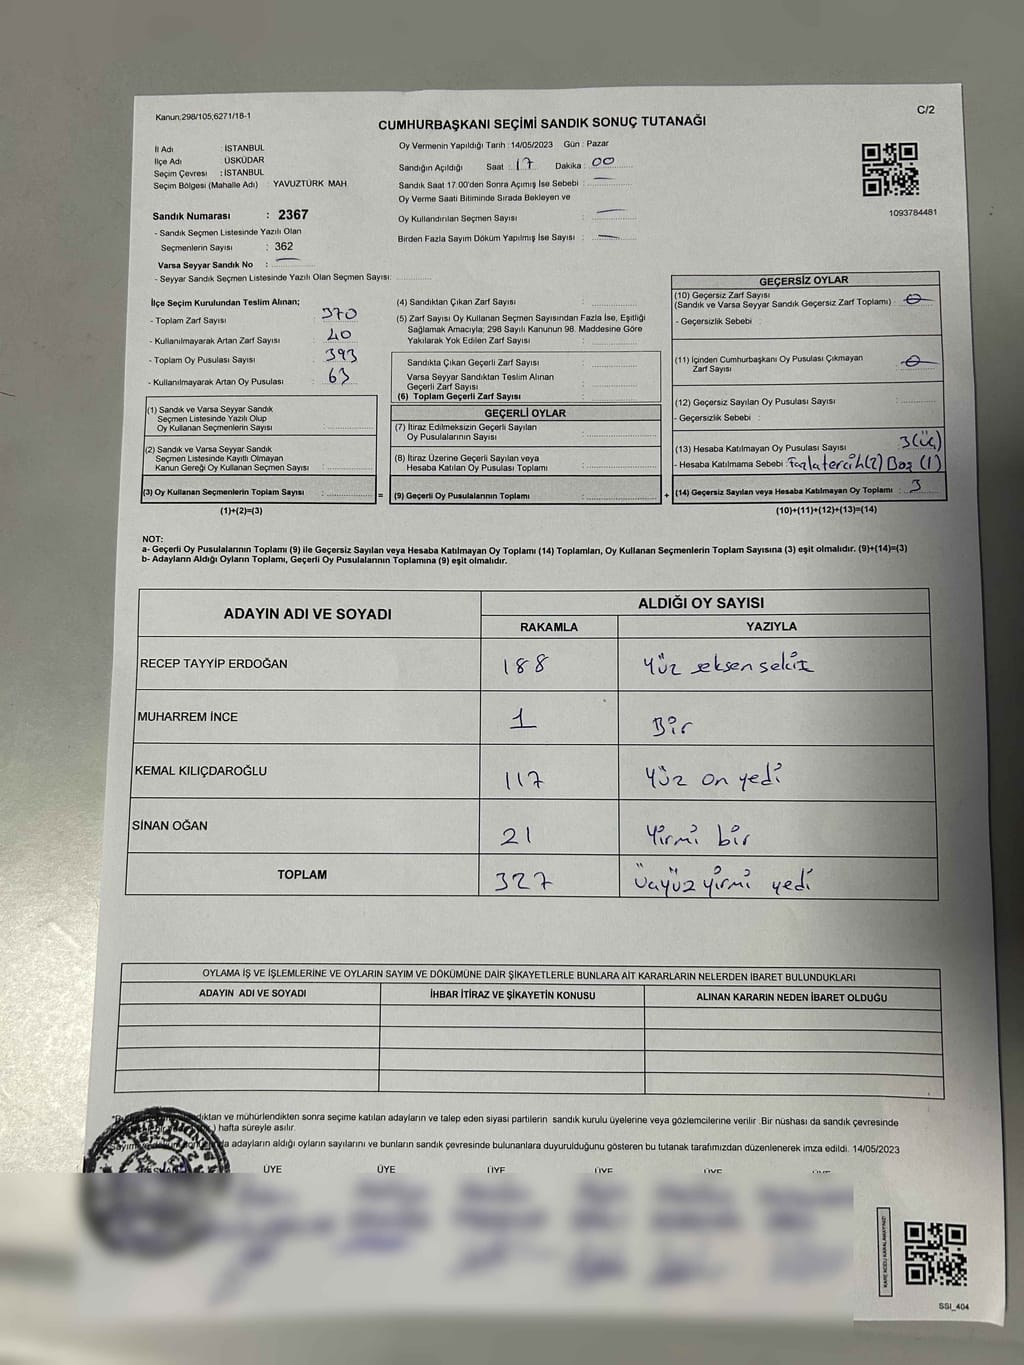 Kanun;298/105,6271/18-1
C/2
CUMHURBAŞKANI SEÇİMİ SANDIK SONUÇ TUTANAĞI
İl Adı : İSTANBUL
İlçe Adı : ÜSKÜDAR
Seçim Çevresi : İSTANBUL
Seçim Bölgesi (Mahalle Adı) : YAVUZTÜRK MAH
Sandık Numarası : 2367
- Sandık Seçmen Listesinde Yazılı Olan
Seçmenlerin Sayısı : 362
Varsa Seyyar Sandık No :
- Seyyar Sandık Seçmen Listesinde Yazılı Olan Seçmen Sayısı:
Oy Vermenin Yapıldığı Tarih : 14/05/2023 Gün : Pazar
Sandığın Açıldığı Saat : 17 Dakika : 00
Sandık Saat 17.00'den Sonra Açımış İse Sebebi :
Oy Verme Saati Bitiminde Sırada Bekleyen ve
Oy Kullandırılan Seçmen Sayısı :
Birden Fazla Sayım Döküm Yapılmış İse Sayısı :
1093784481
İlçe Seçim Kurulundan Teslim Alınan;
- Toplam Zarf Sayısı : 370
- Kullanılmayarak Artan Zarf Sayısı : 40
- Toplam Oy Pusulası Sayısı : 393
- Kullanılmayarak Artan Oy Pusulası : 63
(1) Sandık ve Varsa Seyyar Sandık
Seçmen Listesinde Yazılı Olup
Oy Kullanan Seçmenlerin Sayısı :
(2) Sandık ve Varsa Seyyar Sandık
Seçmen Listesinde Kayıtlı Olmayan
Kanun Gereği Oy Kullanan Seçmen Sayısı :
(3) Oy Kullanan Seçmenlerin Toplam Sayısı : =
(1)+(2)=(3)
(4) Sandıktan Çıkan Zarf Sayısı :
(5) Zarf Sayısı Oy Kullanan Seçmen Sayısından Fazla İse, Eşitliği
Sağlamak Amacıyla; 298 Sayılı Kanunun 98. Maddesine Göre
Yakılarak Yok Edilen Zarf Sayısı :
Sandıkta Çıkan Geçerli Zarf Sayısı :
Varsa Seyyar Sandıktan Teslim Alınan
Geçerli Zarf Sayısı :
(6) Toplam Geçerli Zarf Sayısı :
GEÇERLİ OYLAR
(7) İtiraz Edilmeksizin Geçerli Sayılan
Oy Pusulalarının Sayısı :
(8) İtiraz Üzerine Geçerli Sayılan veya
Hesaba Katılan Oy Pusulası Toplamı :
(9) Geçerli Oy Pusulalarının Toplamı : +
GEÇERSİZ OYLAR
(10) Geçersiz Zarf Sayısı
(Sandık ve Varsa Seyyar Sandık Geçersiz Zarf Toplamı) : 0
- Geçersizlik Sebebi :
(11) İçinden Cumhurbaşkanı Oy Pusulası Çıkmayan : 0
Zarf Sayısı
(12) Geçersiz Sayılan Oy Pusulası Sayısı :
- Geçersizlik Sebebi :
(13) Hesaba Katılmayan Oy Pusulası Sayısı : 3(üç)
- Hesaba Katılmama Sebebi : Fazla tercih(2) Boş (1)
(14) Geçersiz Sayılan veya Hesaba Katılmayan Oy Toplamı : 3
(10)+(11)+(12)+(13)=(14)
NOT:
a- Geçerli Oy Pusulalarının Toplamı (9) ile Geçersiz Sayılan veya Hesaba Katılmayan Oy Toplamı (14) Toplamları, Oy Kullanan Seçmenlerin Toplam Sayısına (3) eşit olmalıdır. (9)+(14)=(3)
b- Adayların Aldığı Oyların Toplamı, Geçerli Oy Pusulalarının Toplamına (9) eşit olmalıdır.
ADAYIN ADI VE SOYADI ALDIĞI OY SAYISI
RAKAMLA YAZIYLA
RECEP TAYYİP ERDOĞAN 188 Yüz seksen sekiz
MUHARREM İNCE 1 Bir
KEMAL KILIÇDAROĞLU 117 Yüz on yedi
SİNAN OĞAN 21 Yirmi bir
TOPLAM 327 Üçyüz yirmi yedi
OYLAMA İŞ VE İŞLEMLERİNE VE OYLARIN SAYIM VE DÖKÜMÜNE DAİR ŞİKAYETLERLE BUNLARA AİT KARARLARIN NELERDEN İBARET BULUNDUKLARI
ADAYIN ADI VE SOYADI İHBAR İTİRAZ VE ŞİKAYETİN KONUSU ALINAN KARARIN NEDEN İBARET OLDUĞU
ve mühürlendikten sonra seçime katılan adayların ve talep eden siyasi partilerin sandık kurulu üyelerine veya gözlemcilerine verilir .Bir nüshası da sandık çevresinde
) hafta süreyle asılır.
adayların aldığı oyların sayılarını ve bunların sandık çevresinde bulunanlara duyurulduğunu gösteren bu tutanak tarafımızdan düzenlenerek imza edildi. 14/05/2023
ÜYE ÜYE ÜYE ÜYE ÜYE
KARE KODU KARALAMAYINIZ!
SSI_404